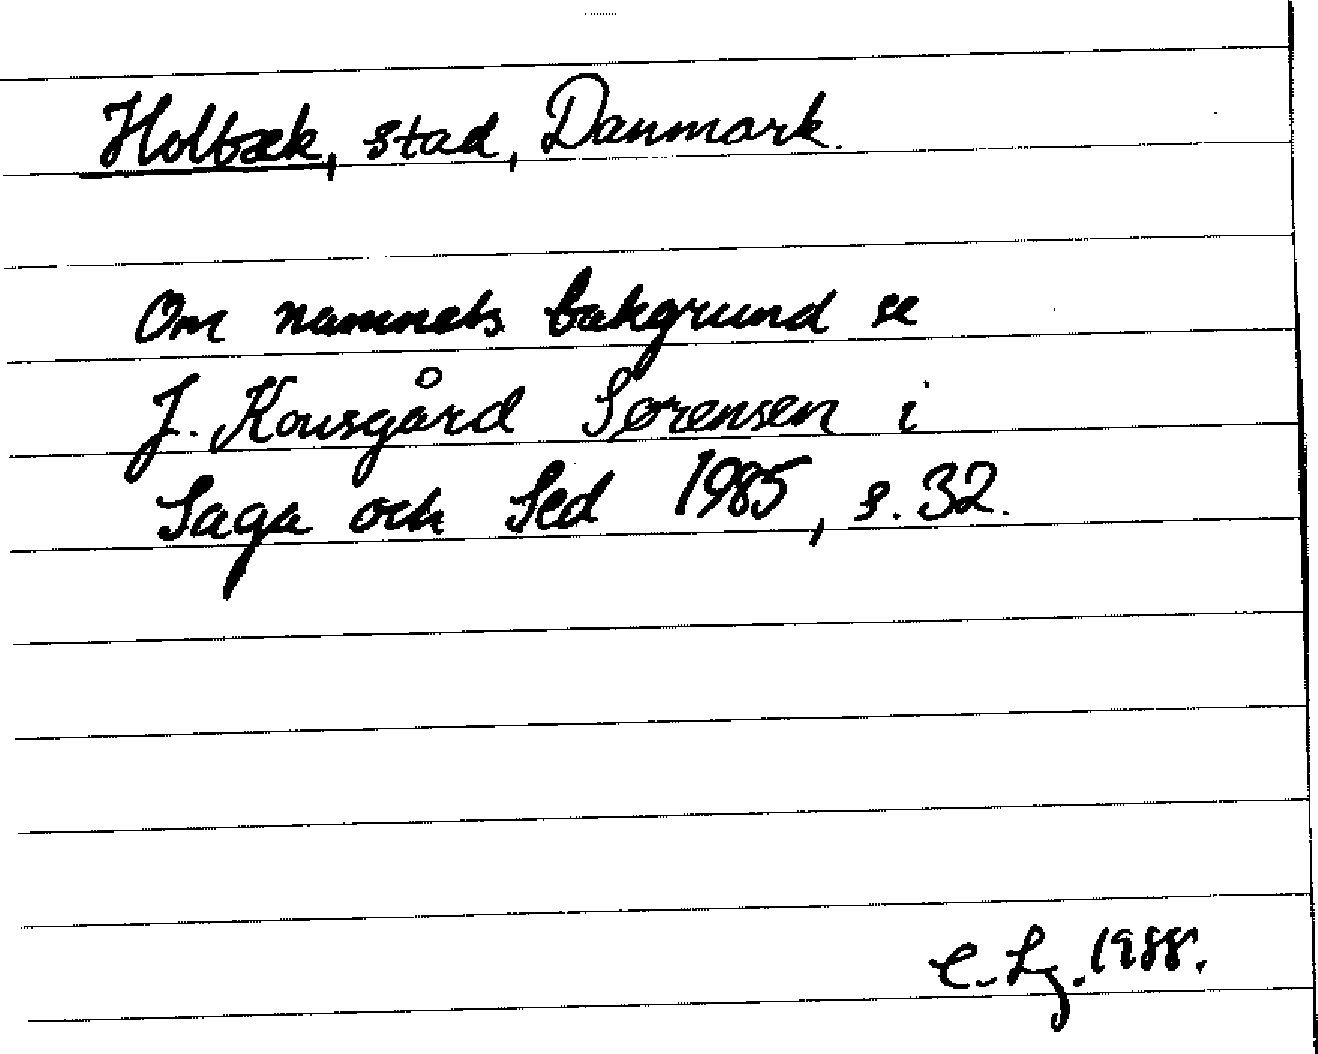 Holbæk, stad, Danmark.
Om namnets bakgrund se
J. Kousgård Sørensen i
Saga och Sed 1985, s. 32.
C-Lg. 1988.